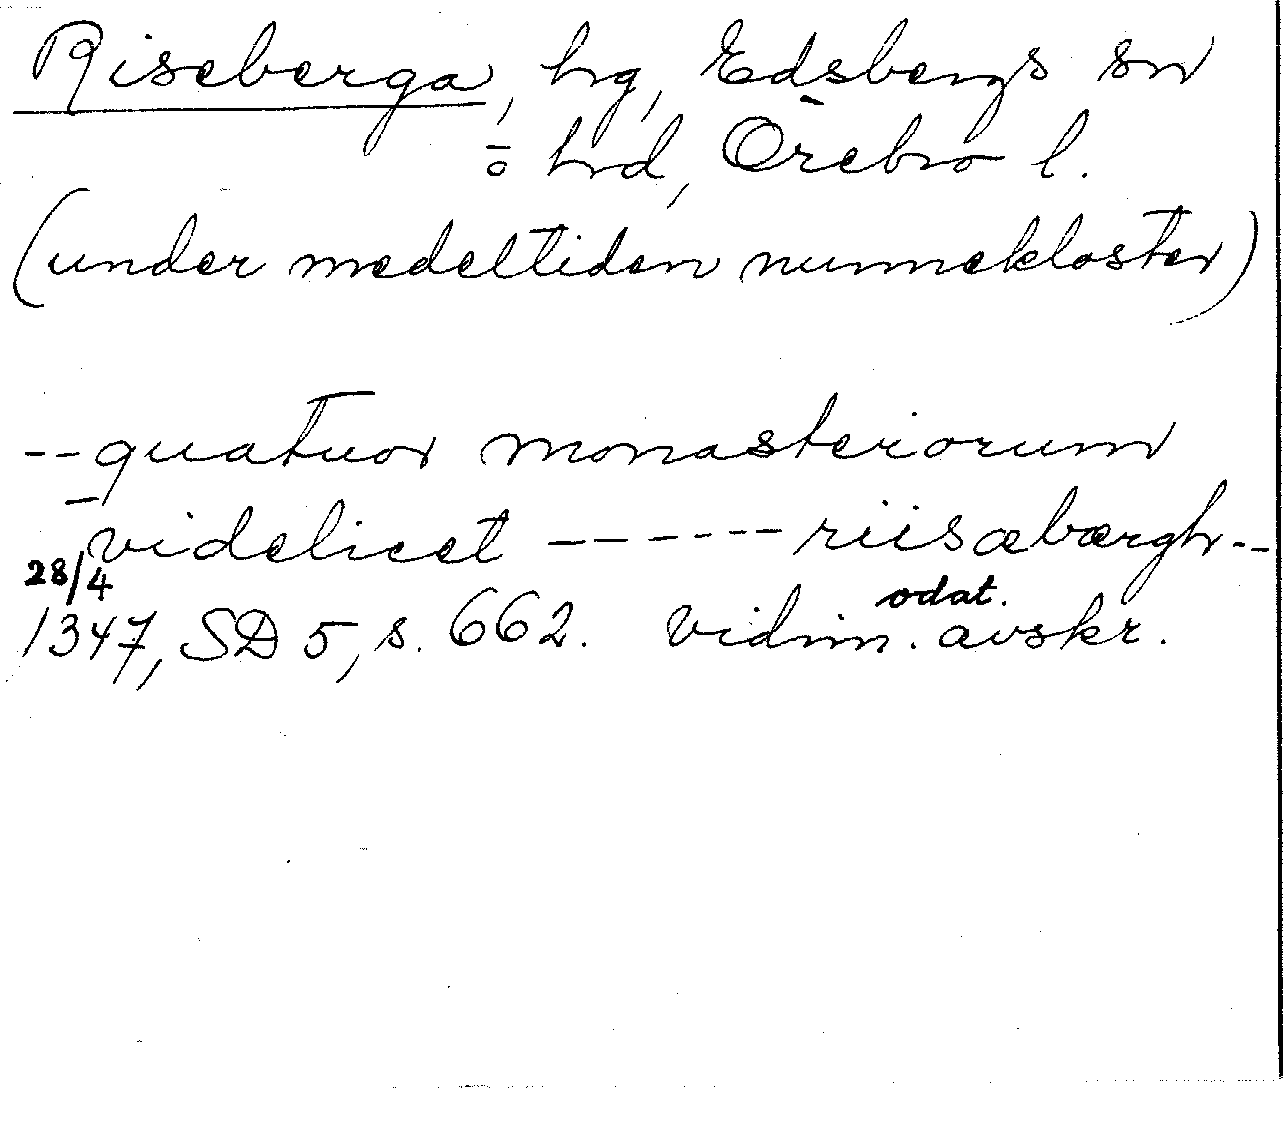 Riseberga, hg, Edsbergs sn
o hd, Örebro l.
(under medeltiden nunnekloster)
-- quatuor monasteriorum
videlicet ------ riisæbærgh --
28/4
1347, SD 5, s. 662. vidim. odat. avskr.